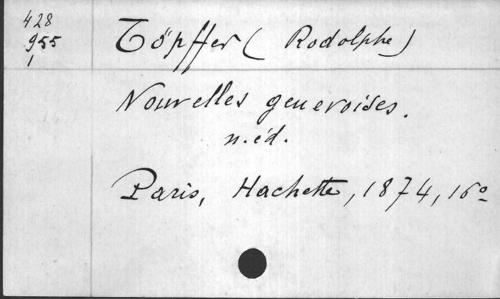 428
955
1
Töpffer (Rodolphe)
Nouvelles genevoises.
n. éd.
Paris, Hachette, 1874, 16º